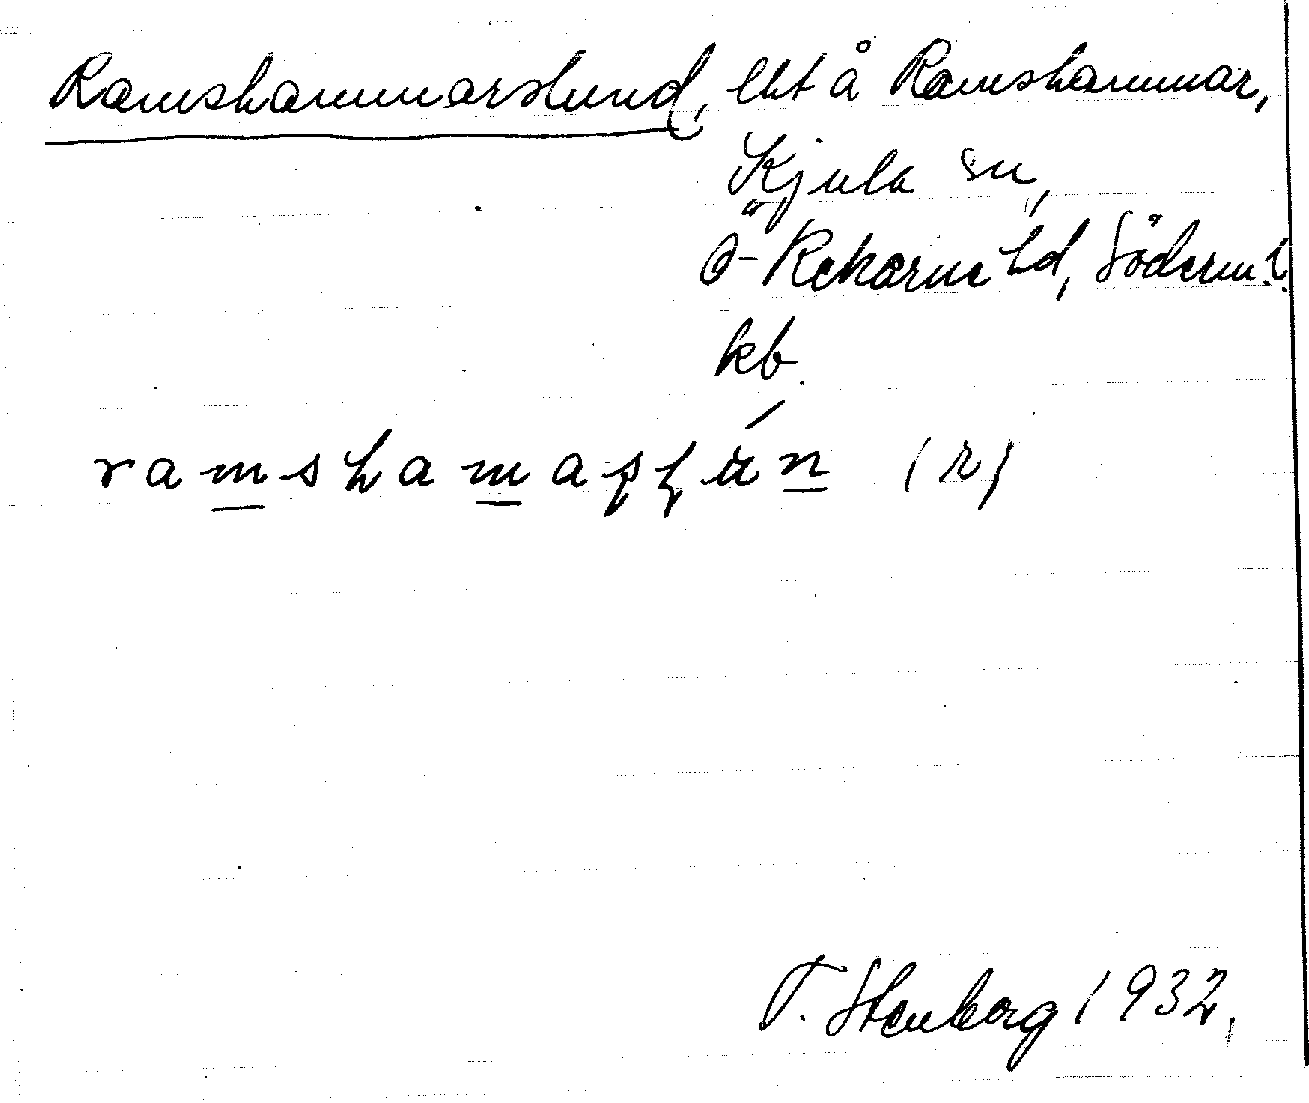 Ramshammarslund, lht å Ramshammar,
Kjula sn,
Ö-Rekarne hd, Söderml.
kb.
ramshamaşļun (r)
T. Stenberg 1932.